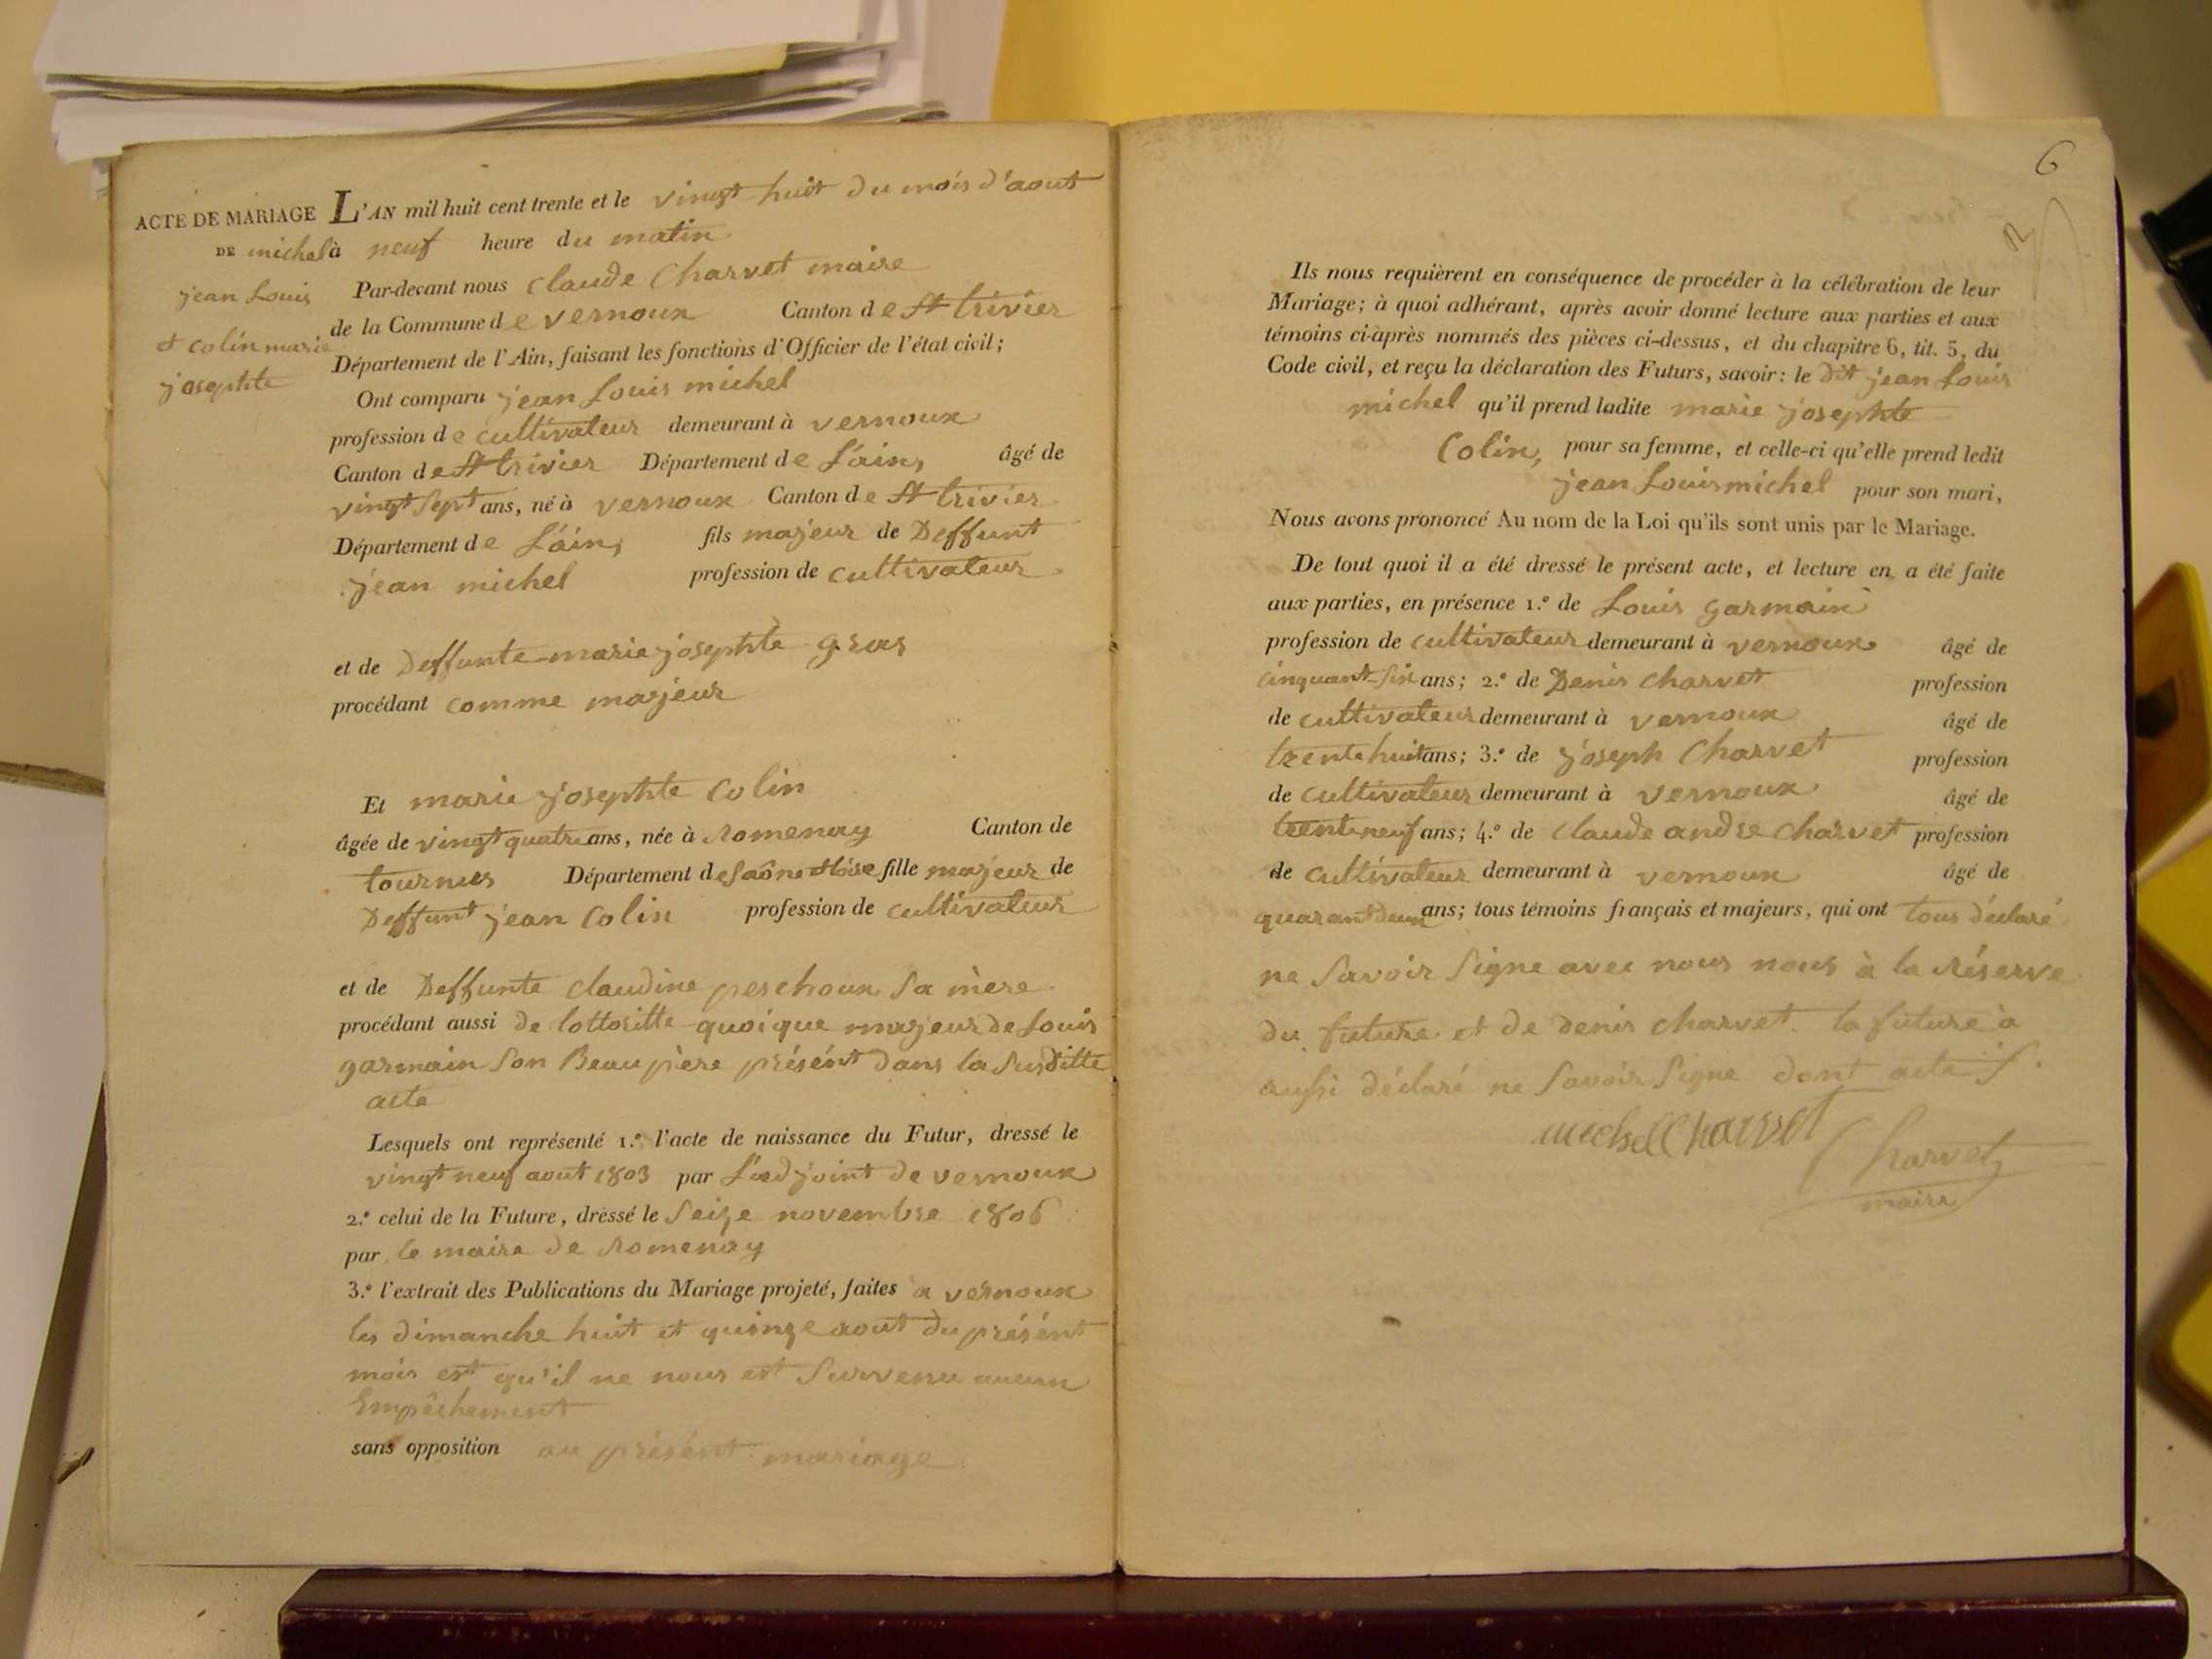 ACTE DE MARIAGE
DE michel
jean Louis
et colin marie
josephte
L'AN mil huit cent trente et le vingt huit du mois d'aout
à neuf heure du matin
Par-devant nous claude Charvet maire
de la Commune de vernoux Canton de St trivier
Département de l'Ain, faisant les fonctions d'Officier de l'état civil;
Ont comparu jean Louis michel
profession de cultivateur demeurant à vernoux
Canton de St trivier Département de L'ain, âgé de
vingt Sept ans, né à vernoux Canton de St trivier
Département de L'ain, fils majeur de Deffunt
jean michel profession de cultivateur
et de Deffunte marie josephte gras
procédant comme majeur
Et marie josephte Colin
âgée de vingt quatre ans, née à Romenay Canton de
tournus Département de Saône et Loire fille majeur de
Deffunt jean Colin profession de cultivateur
et de Deffunte claudine peschoux Sa mère
procédant aussi de lottoritte quoique majeur de Louis
garmain Son Beau père présént dans la Susditte
acte
Lesquels ont représenté 1.º l'acte de naissance du Futur, dressé le
vingt neuf aout 1803 par L'adjoint de vernoux
2.º celui de la Future, dressé le Seize novembre 1806
par le maire de Romenay
3.º l'extrait des Publications du Mariage projeté, faites a vernoux
les dimanche huit et quinze aout du présént
mois est qu'il ne nous est Survenu aucun
Empêchement
sans opposition au présént mariage
6
Ils nous requièrent en conséquence de procéder à la célébration de leur
Mariage; à quoi adhérant, après avoir donné lecture aux parties et aux
témoins ci-après nommés des pièces ci-dessus, et du chapitre 6, tit. 5, du
Code civil, et reçu la déclaration des Futurs, savoir: le dit jean Louis
michel qu'il prend ladite marie josephte
Colin, pour sa femme, et celle-ci qu'elle prend ledit
jean Louis michel pour son mari,
Nous avons prononcé Au nom de la Loi qu'ils sont unis par le Mariage.
De tout quoi il a été dressé le présent acte, et lecture en a été faite
aux parties, en présence 1.º de Louis garmain
profession de cultivateur demeurant à vernoux âgé de
cinquant Six ans; 2.º de Denis Charvet profession
de cultivateur demeurant à vernoux âgé de
trente huit ans; 3.º de joseph Charvet profession
de cultivateur demeurant à vernoux âgé de
trente neuf ans; 4.º de claude andre Charvet profession
de cultivateur demeurant à vernoux âgé de
quarant deux ans; tous témoins français et majeurs, qui ont tous déclaré
ne Savoir Signe avec nous nous à la réserve
du future et de denis charvet la future à
aussi déclaré ne Savoir Signe dont acte
michel Charvet
Charvet
maire